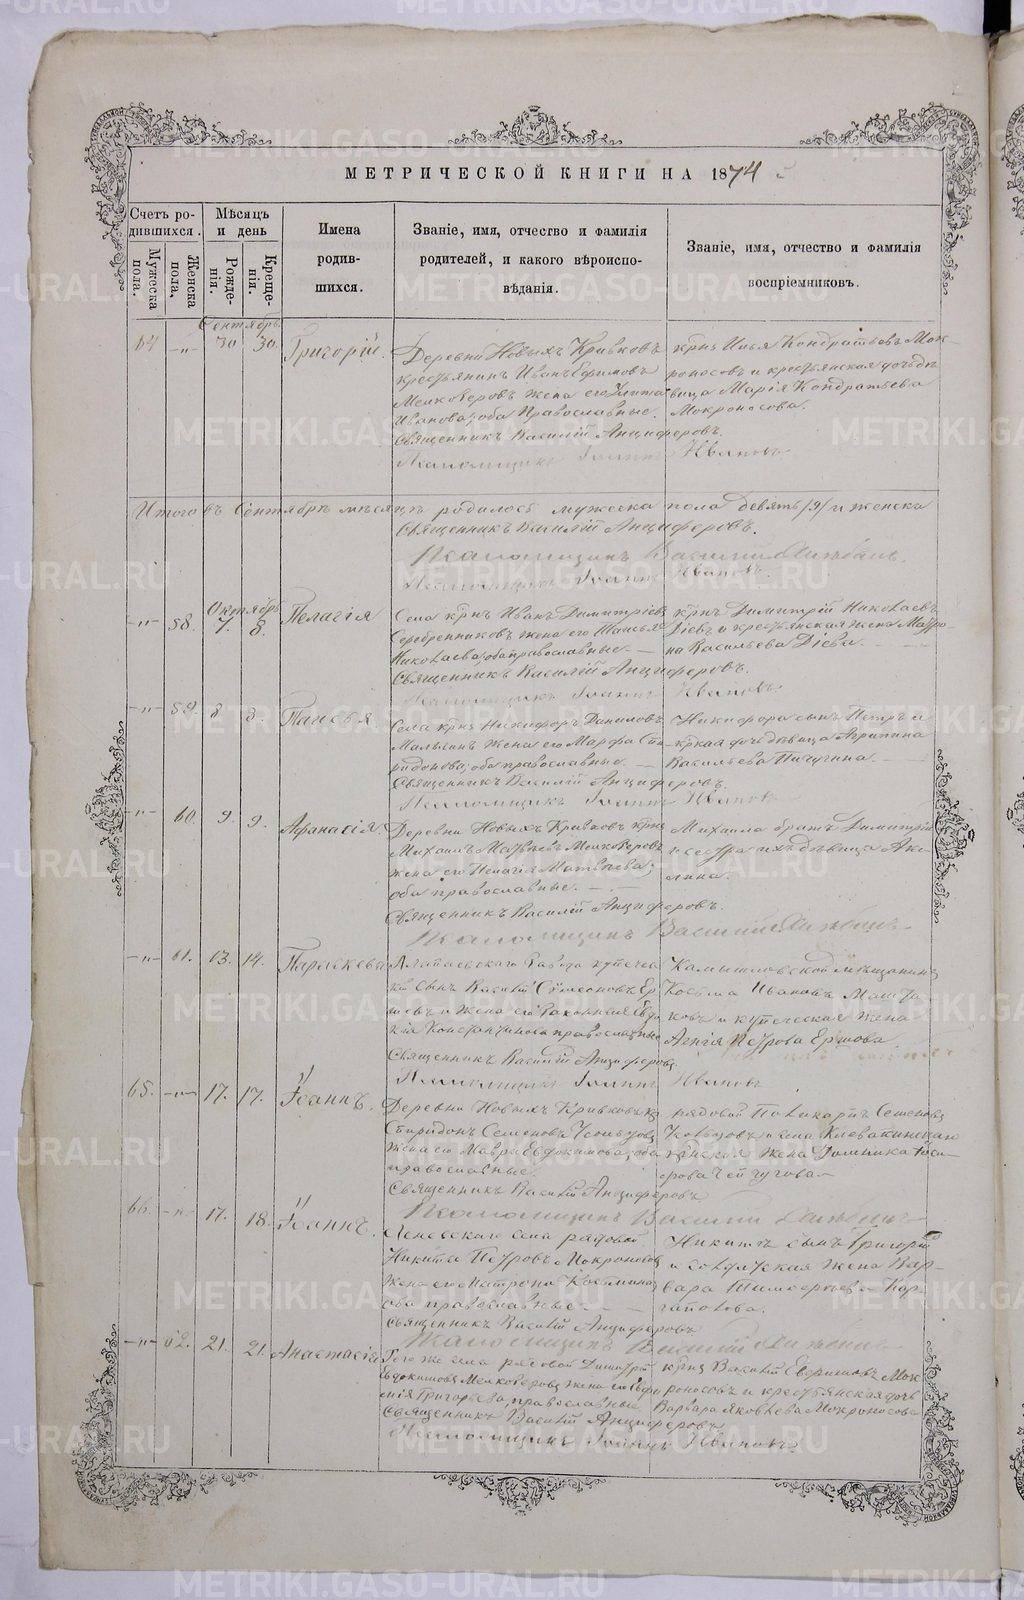 МЕТРИЧЕСКОЙ КНИГИ НА 1874
Счетъ ро-
дившихся.
Мужеска пола.
Женска пола.
Мѣсяцъ
и день
Рожде-
нія.
Креще-
нія.
Имена
родив-
шихся.
Званіе, имя, отчество и фамилія
родителей, и какого вѣроиспо-
вѣданія.
Званіе, имя, отчество и фамилія
воспріемниковъ.
Сентябрь
64 —„— 30 30. Григорій.
Деревни Новыхъ Кривковъ
крестьянинъ Иванъ Ефимовъ
Мелкозеровъ жена его
Иванова, оба Православные.
Священникъ Василій Анциферовъ.
Псаломщикъ Іоаннъ Ивановъ
крнъ Илья Кондратьевъ Мок-
роносовъ и крестьянская дочь дѣ-
вица Марія Кондратьева
Мокроносова.
Итого въ Сентябрѣ мѣсяцѣ родилось мужеска пола девять /9/ и женска
Священникъ Василій Анциферовъ.
Псаломщикъ Василій
Псаломщикъ Іоаннъ Ивановъ.
Октябрь
—„— 58. 7. 8. Пелагія
Села крнъ Иванъ Димитріевъ
Серебренниковъ жена его Таисья
Николаева, оба православные. —
Священникъ Василій Анциферовъ.
Псаломщикъ Іоаннъ Ивановъ
крнъ Димитрій Николаевъ
Діевъ и крестьянская жена Мавро-
на Васильева Діева.
—„— 59. 8 8. Таисья
Села крнъ Никифоръ Даниловъ
Мальгинъ жена его Марфа Спи-
ридонова, оба православные. —
Священникъ Василій Анциферовъ.
Псаломщикъ Іоаннъ Ивановъ
Никифора сынъ Петръ и
крская дочь дѣвица Агрипина
Васильева Пичугина. —
—„— 60. 9. 9. Афанасія.
Деревни Новыхъ Кривковъ крнъ
Михаилъ Матвѣевъ Мелкозеровъ
жена его Пелагія Матвѣева,
оба православные. —
Священникъ Василій Анциферовъ.
Псаломщикъ Василій
Михаила братъ Димитрій
и сестра ихъ дѣвица Аку-
лина.
—„— 61. 13. 14. Параскева
Алапаевскаго завода купечес-
кій сынъ Василій Симеоновъ Ер-
шовъ и жена его законная Евдо-
кія Константинова православные
Священникъ Василій Анциферовъ
Псаломщикъ Іоаннъ Ивановъ
Камышловской мѣщанинъ
Косьма Ивановъ
ковъ и купеческая жена
Петрова Ершова.
65. —„— 17. 17. Іоаннъ.
Деревни Новыхъ Кривковъ кр
Спиридонъ Семеновъ
жена его Мавра Евдокимова, оба
православные
Священникъ Василій Анциферовъ
Псаломщикъ Василій
рядовой Поликарпъ Семеновъ
и села Клевакинскаго
крнская жена Домника
рова
66. —„— 17. 18. Іоаннъ.
Леневскаго села рядовой
Никита Петровъ Мокроносовъ
жена его Матрона Космина
оба православные —
Священникъ Василій Анциферовъ
Псаломщикъ Василій
Никиты сынъ Григорій
и солдатская жена Вар-
вара Тимофеева Кар-
гаполова.
—„— 62. 21. 21. Анастасія
Того же села рядовой Димитрій
Евдокимовъ Мелкозеровъ жена его
Григорьева, православные
Священникъ Василій Анциферовъ
Псаломщикъ Іоаннъ Ивановъ
крнъ Василій Мок-
роносовъ и крестьянская дочь
Варвара Яковлева Мокроносова
METRIKI.GASO-URAL.RU